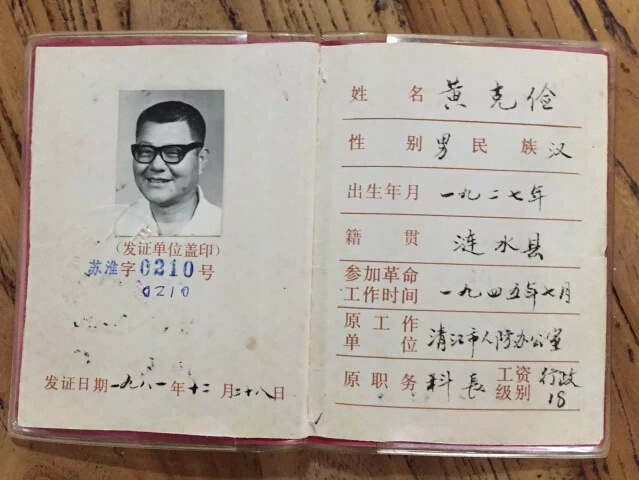 (发证单位盖印)
苏淮字0210号
0210
发证日期一九八一年十二月二十八日
姓名 黄克俭
性别 男 民族 汉
出生年月 一九二七年
籍贯 涟水县
参加革命工作时间 一九四五年七月
原工作单位 清江市人防办公室
原职务 科长 工资级别 行政18